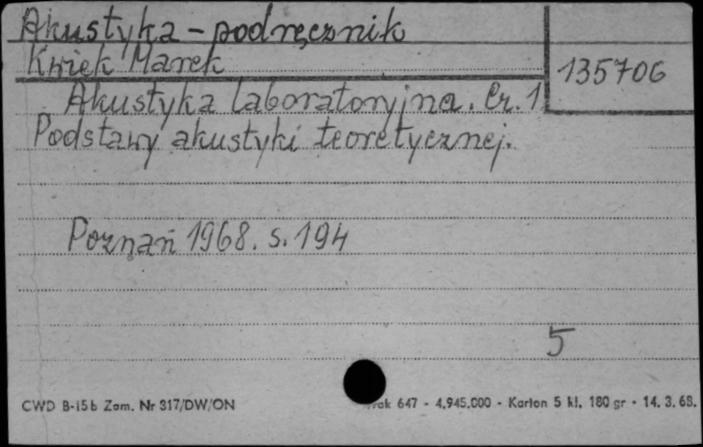 Akustyka - podręcznik
Kwiek Marek
135706
Akustyka laboratoryjna. Cz. 1
Podstawy akustyki teoretycznej.
Poznań 1968. s. 194
5
CWD B-15b Zam. Nr 317/DW/ON
647 - 4.945.000 - Karton 5 kl. 180 gr - 14. 3. 68.